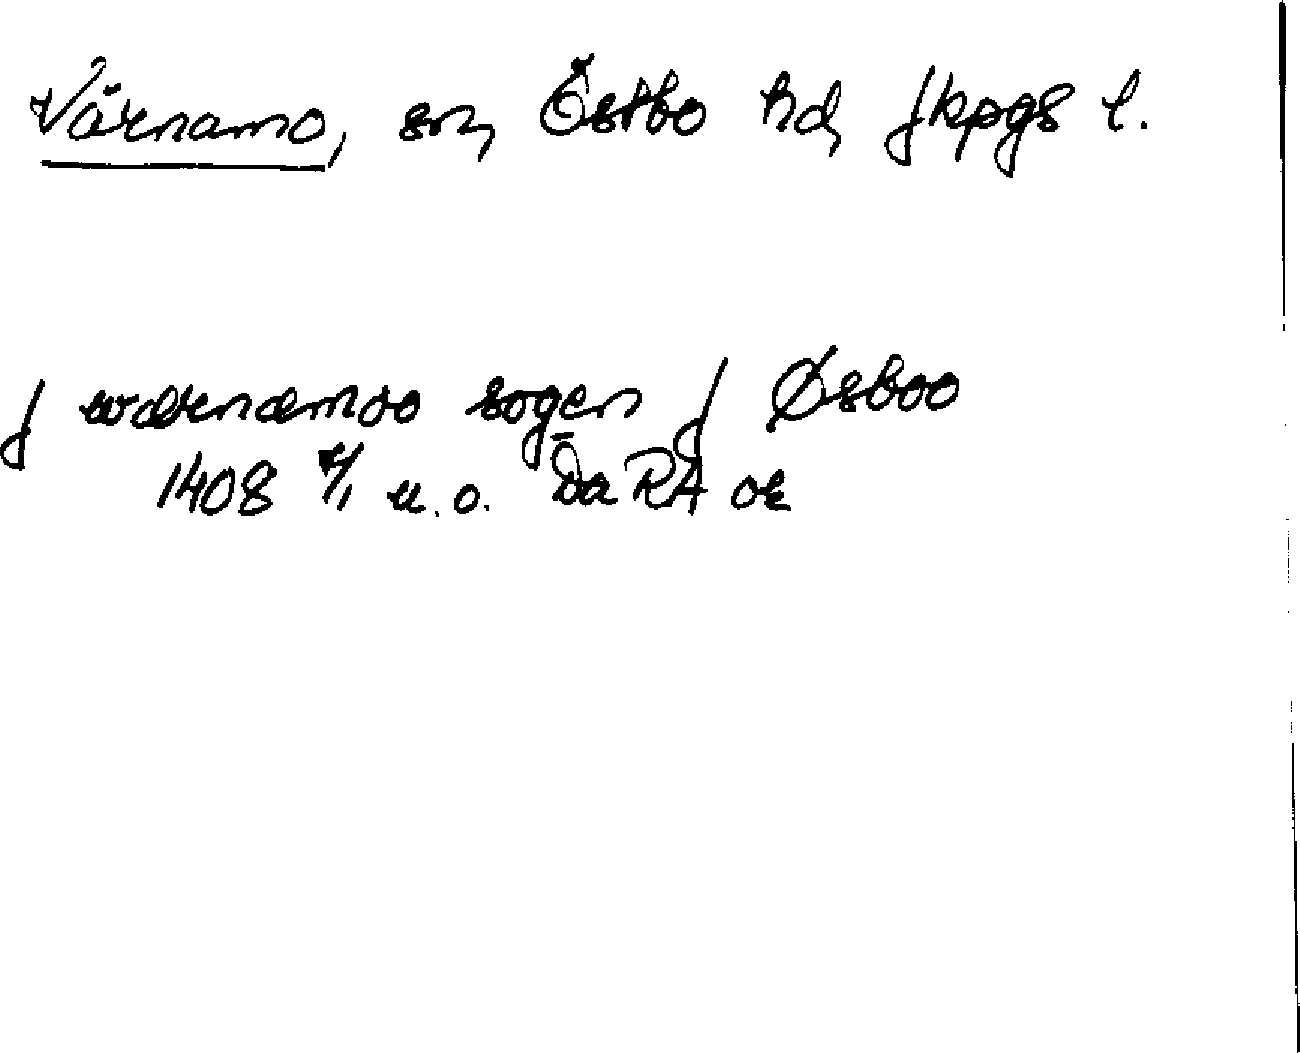 Värnamo, sn, Östbo hd, Jkpgs l.
J wærnæmoo sogen J Øsboo
1408 4/1 u.o. Da RA or